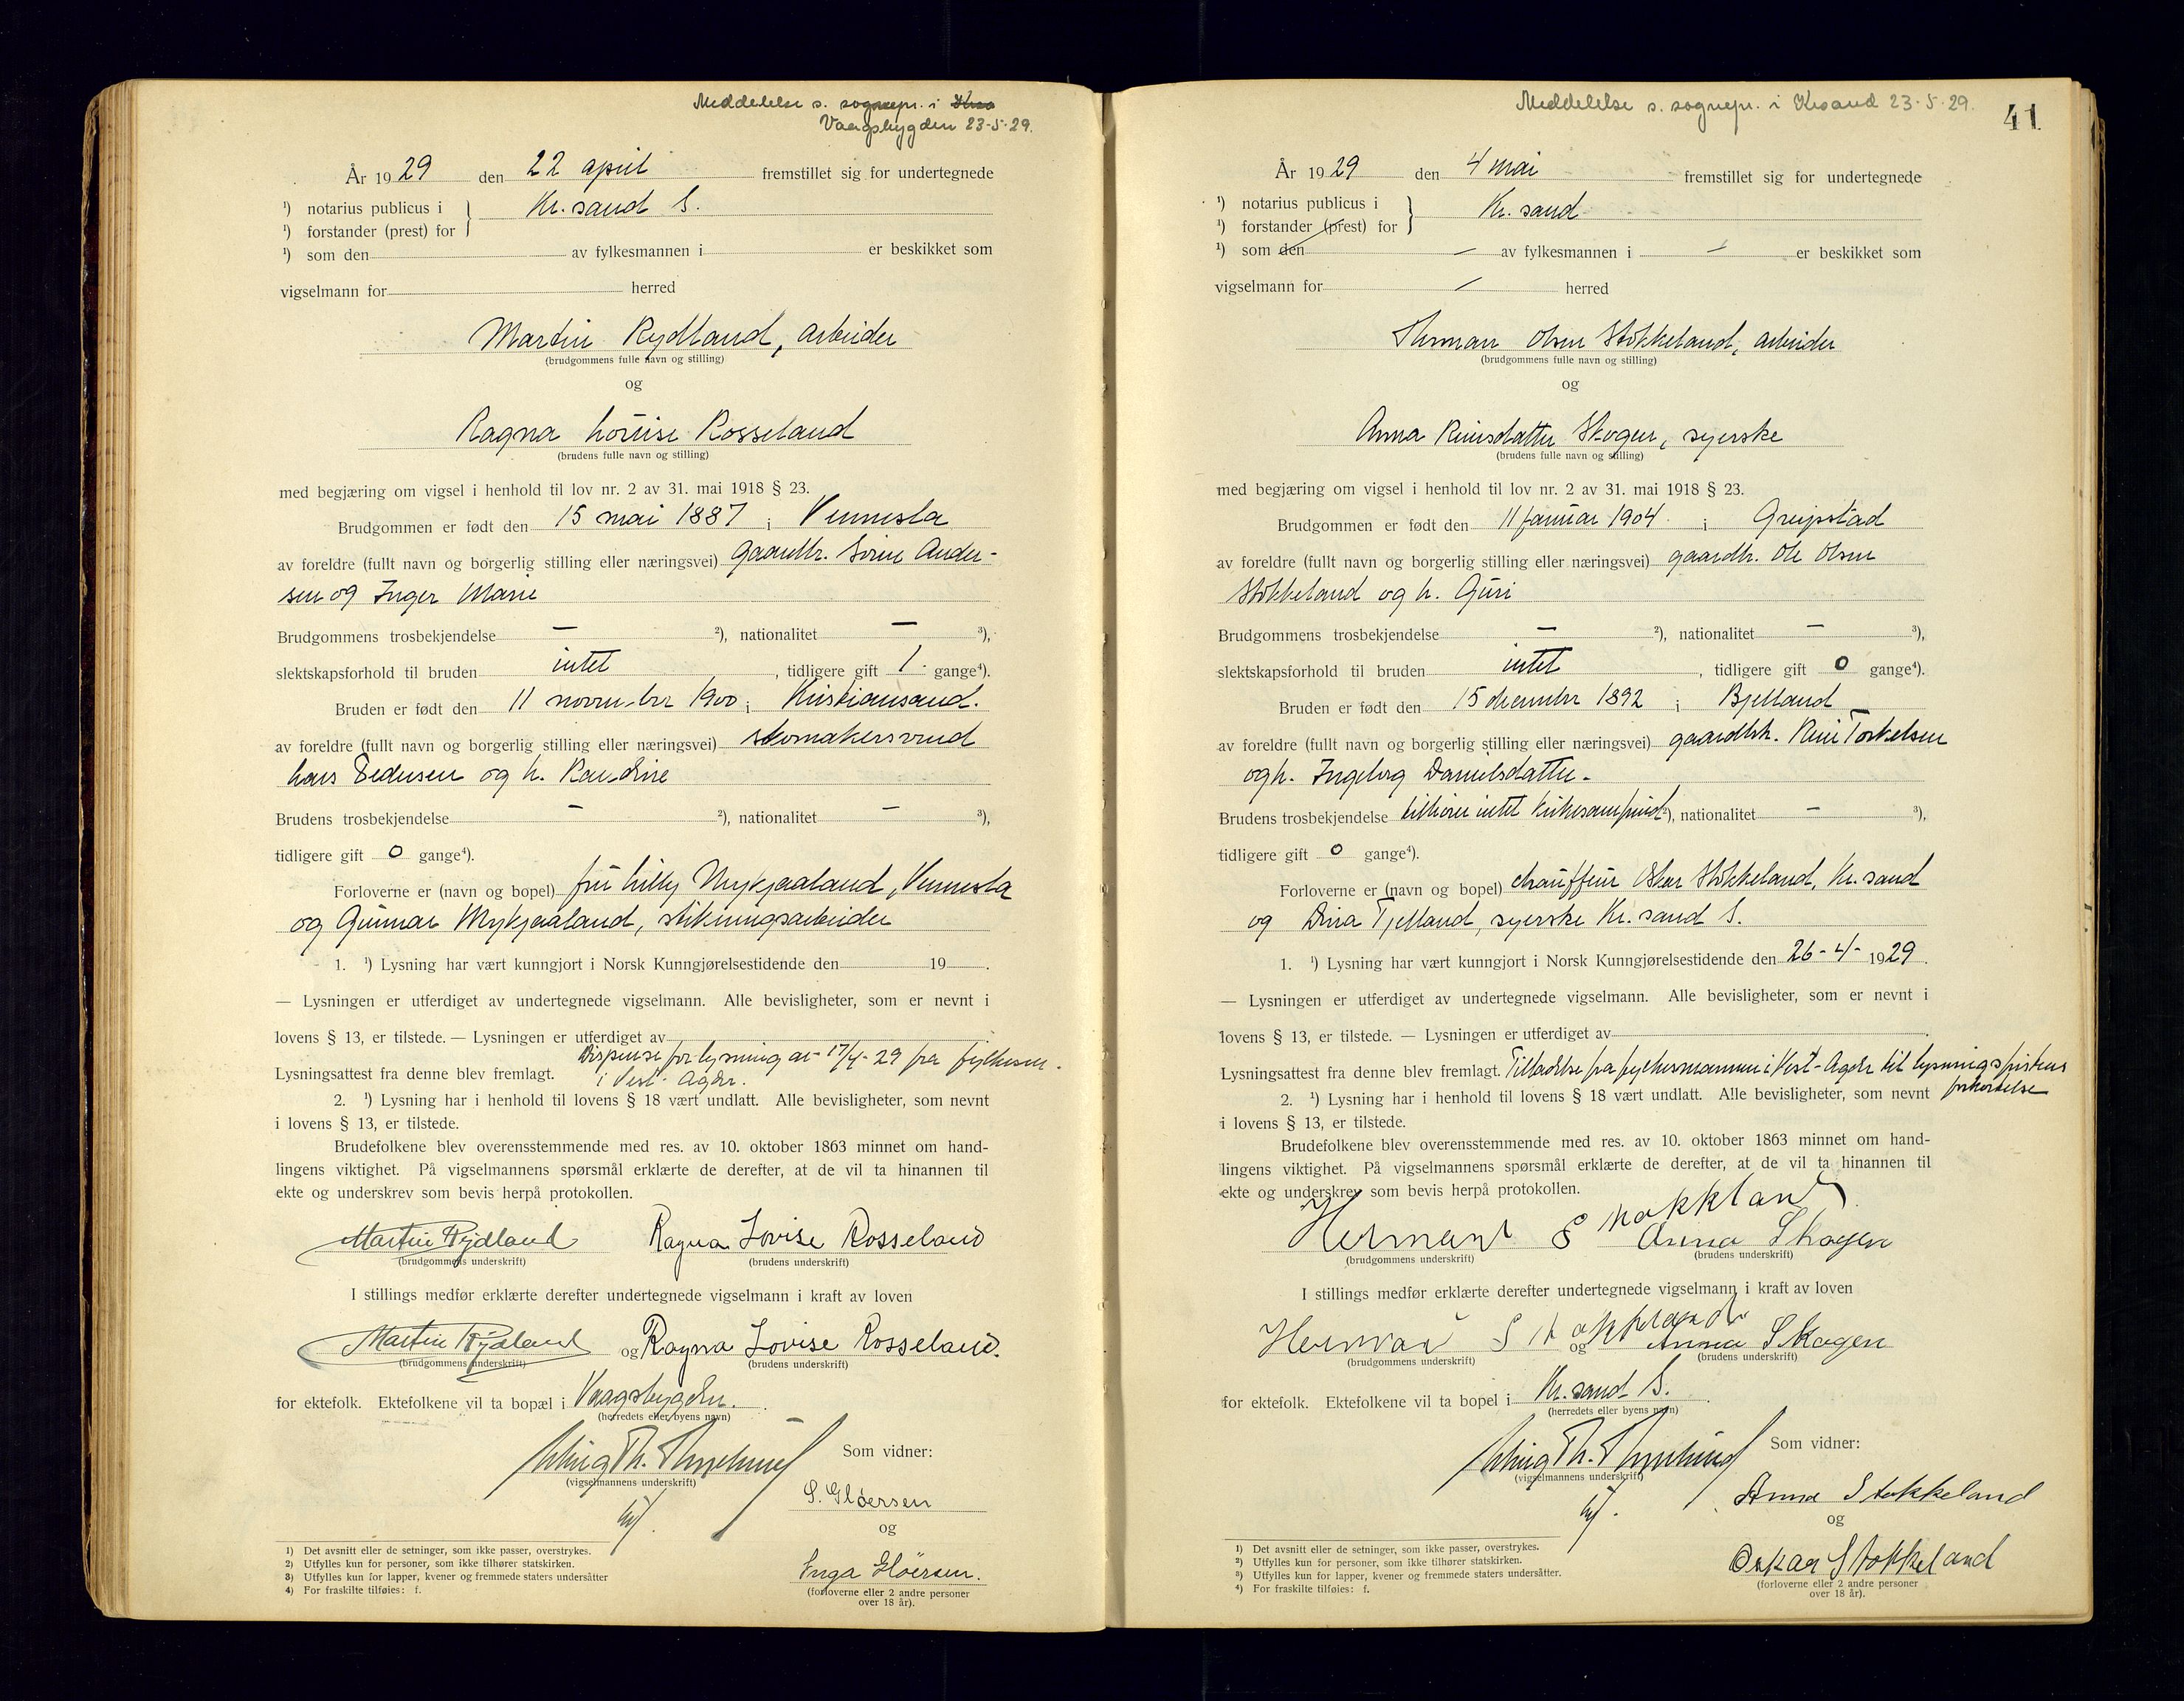 Meddelelse s. sognepr. i
Vaagsbygden 23-5-29.
År 1929 den 22 april fremstillet sig for undertegnede
¹) notarius publicus i Kr.sand S.
¹) forstander (prest) for
¹) som den av fylkesmannen i er beskikket som
vigselmann for herred
Martin Rydland, arbeider
(brudgommens fulle navn og stilling)
og
Ragna Louise Rosseland
(brudens fulle navn og stilling)
med begjæring om vigsel i henhold til lov nr. 2 av 31. mai 1918 § 23.
Brudgommen er født den 15 mai 1887 i Vennesla
av foreldre (fullt navn og borgerlig stilling eller næringsvei) gaardbr. Sören Ander-
sen og Inger Marie
Brudgommens trosbekjendelse — ²), nationalitet — ³),
slektskapsforhold til bruden intet, tidligere gift 1 gange⁴).
Bruden er født den 11 november 1900 i Kristiansand.
av foreldre (fullt navn og borgerlig stilling eller næringsvei) skomakersvend
Lars Pedersen og h. Randine
Brudens trosbekjendelse — ²), nationalitet — ³),
tidligere gift 0 gange⁴).
Forloverne er (navn og bopel) fru Lilly Mykjaaland, Vennesla
og Gunnar Mykjaaland, arbeider
1. ¹) Lysning har vært kunngjort i Norsk Kunngjørelsestidende den 19 .
— Lysningen er utferdiget av undertegnede vigselmann. Alle bevisligheter, som er nevnt i
lovens § 13, er tilstede. — Lysningen er utferdiget av
Lysningsattest fra denne blev fremlagt. Dispense for lysning av 17/4-29 fra fylkesm.
i Vest-Agder.
2. ¹) Lysning har i henhold til lovens § 18 vært undlatt. Alle bevisligheter, som nevnt
i lovens § 13, er tilstede.
Brudefolkene blev overensstemmende med res. av 10. oktober 1863 minnet om hand-
lingens viktighet. På vigselmannens spørsmål erklærte de derefter, at de vil ta hinannen til
ekte og underskrev som bevis herpå protokollen.
Martin Rydland Ragna Lovise Rosseland
(brudgommens underskrift) (brudens underskrift)
I stillings medfør erklærte derefter undertegnede vigselmann i kraft av loven
Martin Rydland og Ragna Lovise Rosseland.
(brudgommens underskrift) (brudens underskrift)
for ektefolk. Ektefolkene vil ta bopæl i Vaagsbygden.
(herredets eller byens navn)
Som vidner:
(vigselmannens underskrift)
S. Glöersen
og
Inga Glöersen.
(forloverne eller 2 andre personer
over 18 år).
1) Det avsnitt eller de setninger, som ikke passer, overstrykes.
2) Utfylles kun for personer, som ikke tilhører statskirken.
3) Utfylles kun for lapper, kvener og fremmede staters undersåtter
4) For fraskilte tilføies: f.
Meddelelse s. sognepr. i Krsand 23-5-29.
41
År 1929 den 4 mai fremstillet sig for undertegnede
¹) notarius publicus i Kr.sand
¹) forstander (prest) for
¹) som den — av fylkesmannen i — er beskikket som
vigselmann for — herred
Herman Olsen Stokkeland, arbeider
(brudgommens fulle navn og stilling)
og
Anna Reiersdatter Skogen, syerske
(brudens fulle navn og stilling)
med begjæring om vigsel i henhold til lov nr. 2 av 31. mai 1918 § 23.
Brudgommen er født den 11 januar 1904 i Greipstad
av foreldre (fullt navn og borgerlig stilling eller næringsvei) gaardbr. Ole Olsen
Stokkeland og h. Guri
Brudgommens trosbekjendelse — ²), nationalitet — ³),
slektskapsforhold til bruden intet, tidligere gift 0 gange⁴).
Bruden er født den 15 december 1892 i Bjelland
av foreldre (fullt navn og borgerlig stilling eller næringsvei) gaardbr. Reier Torkelsen
og h. Ingeborg Danielsdatter.
Brudens trosbekjendelse tilhører intet kirkesamfund²), nationalitet — ³),
tidligere gift 0 gange⁴).
Forloverne er (navn og bopel) chauffeur Oskar Stokkeland, Kr.sand
og Dina Tjelland, syerske Kr.sand S.
1. ¹) Lysning har vært kunngjort i Norsk Kunngjørelsestidende den 26-4- 1929.
— Lysningen er utferdiget av undertegnede vigselmann. Alle bevisligheter, som er nevnt i
lovens § 13, er tilstede. — Lysningen er utferdiget av .
Lysningsattest fra denne blev fremlagt. Tilladelse fra fylkesmannen i Vest-Agder til lysningsfristens
forkortelse
2. ¹) Lysning har i henhold til lovens § 18 vært undlatt. Alle bevisligheter, som nevnt
i lovens § 13, er tilstede.
Brudefolkene blev overensstemmende med res. av 10. oktober 1863 minnet om hand-
lingens viktighet. På vigselmannens spørsmål erklærte de derefter, at de vil ta hinannen til
ekte og underskrev som bevis herpå protokollen.
Herman Anna Skogen
(brudgommens underskrift) (brudens underskrift)
I stillings medfør erklærte derefter undertegnede vigselmann i kraft av loven
Herman Stokkeland og Anna Skogen
(brudgommens underskrift) (brudens underskrift)
for ektefolk. Ektefolkene vil ta bopel i Kr.sand S.
(herredets eller byens navn)
Som vidner:
(vigselmannens underskrift)
Anna Stokkeland
og
Oskar Stokkeland
(forloverne eller 2 andre personer
over 18 år).
1) Det avsnitt eller de setninger, som ikke passer, overstrykes.
2) Utfylles kun for personer, som ikke tilhører statskirken.
3) Utfylles kun for lapper, kvener og fremmede staters undersåtter.
4) For fraskilte tilføies: f.